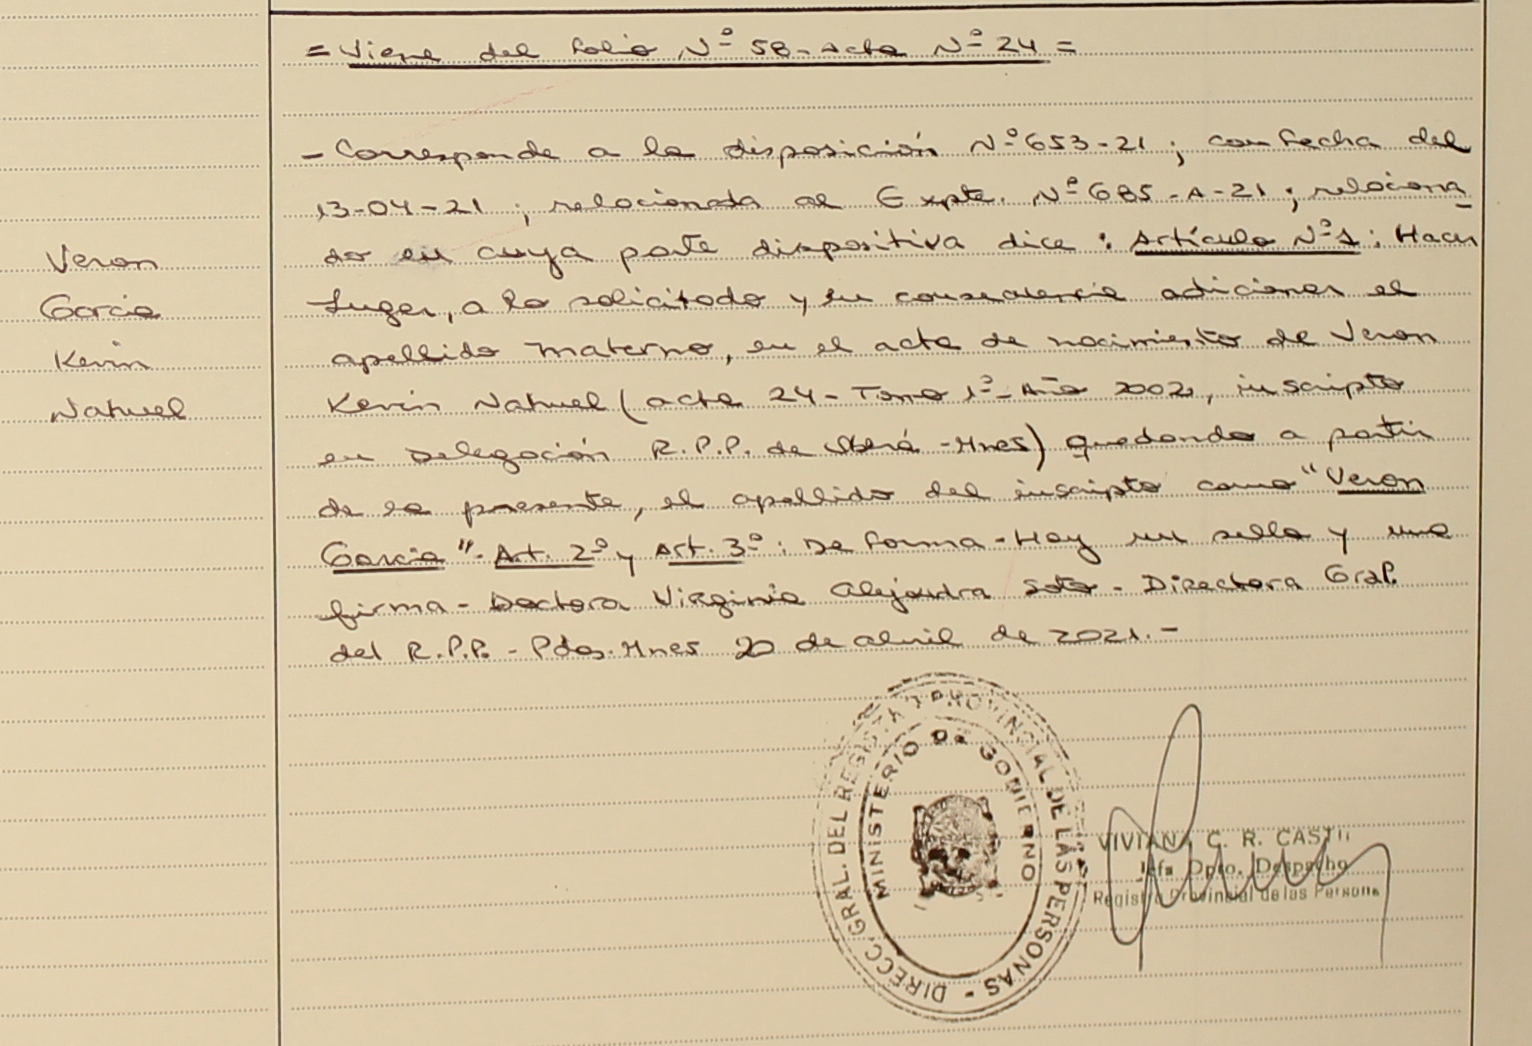 = Viene del folio Nº 58 - Acta Nº 24 =
- Corresponde a la disposición Nº 653-21 ; con fecha del
13-04-21 ; relacionada al Expte. Nº 685-A-21 ; relaciona
do en cuya parte dispositiva dice : Artículo Nº 1 : Hacer
lugar, a lo solicitado y en consecuencia adicionar el
apellido materno, en el acta de nacimiento de Veron
Kevin Nahuel ( acta 24 - Tomo 1º - Año 2002, inscripto
en Delegación R.P.P. de Oberá - Mnes) quedando a partir
de la presente, el apellido del inscripto como "Veron
Garcia". Art. 2º y Art. 3º : De forma - Hay un sello y una
firma - Doctora Virginia Alejandra Soto - Directora Gral.
del R.P.P. - Pdas. Mnes 20 de abril de 2021. -
Veron
Garcia
Kevin
Nahuel
DIRECC. GRAL. DEL REGISTRO PROVINCIAL DE LAS PERSONAS -
MINISTERIO DE GOBIERNO
VIVIANA C. R.
Jefa Dpto. Despacho
Registro Provincial de las Persona